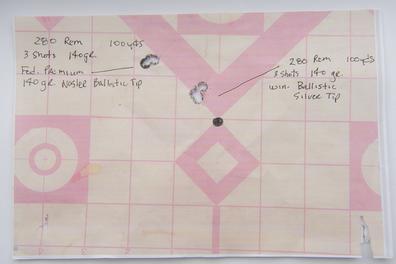 280 Rem 100yds
3 Shots 140gr.
Fed. Premium
140 gr. Nosler Ballistic Tip
280 Rem 100yds
3 Shots 140 gr.
Win. Ballistic
Silver Tip